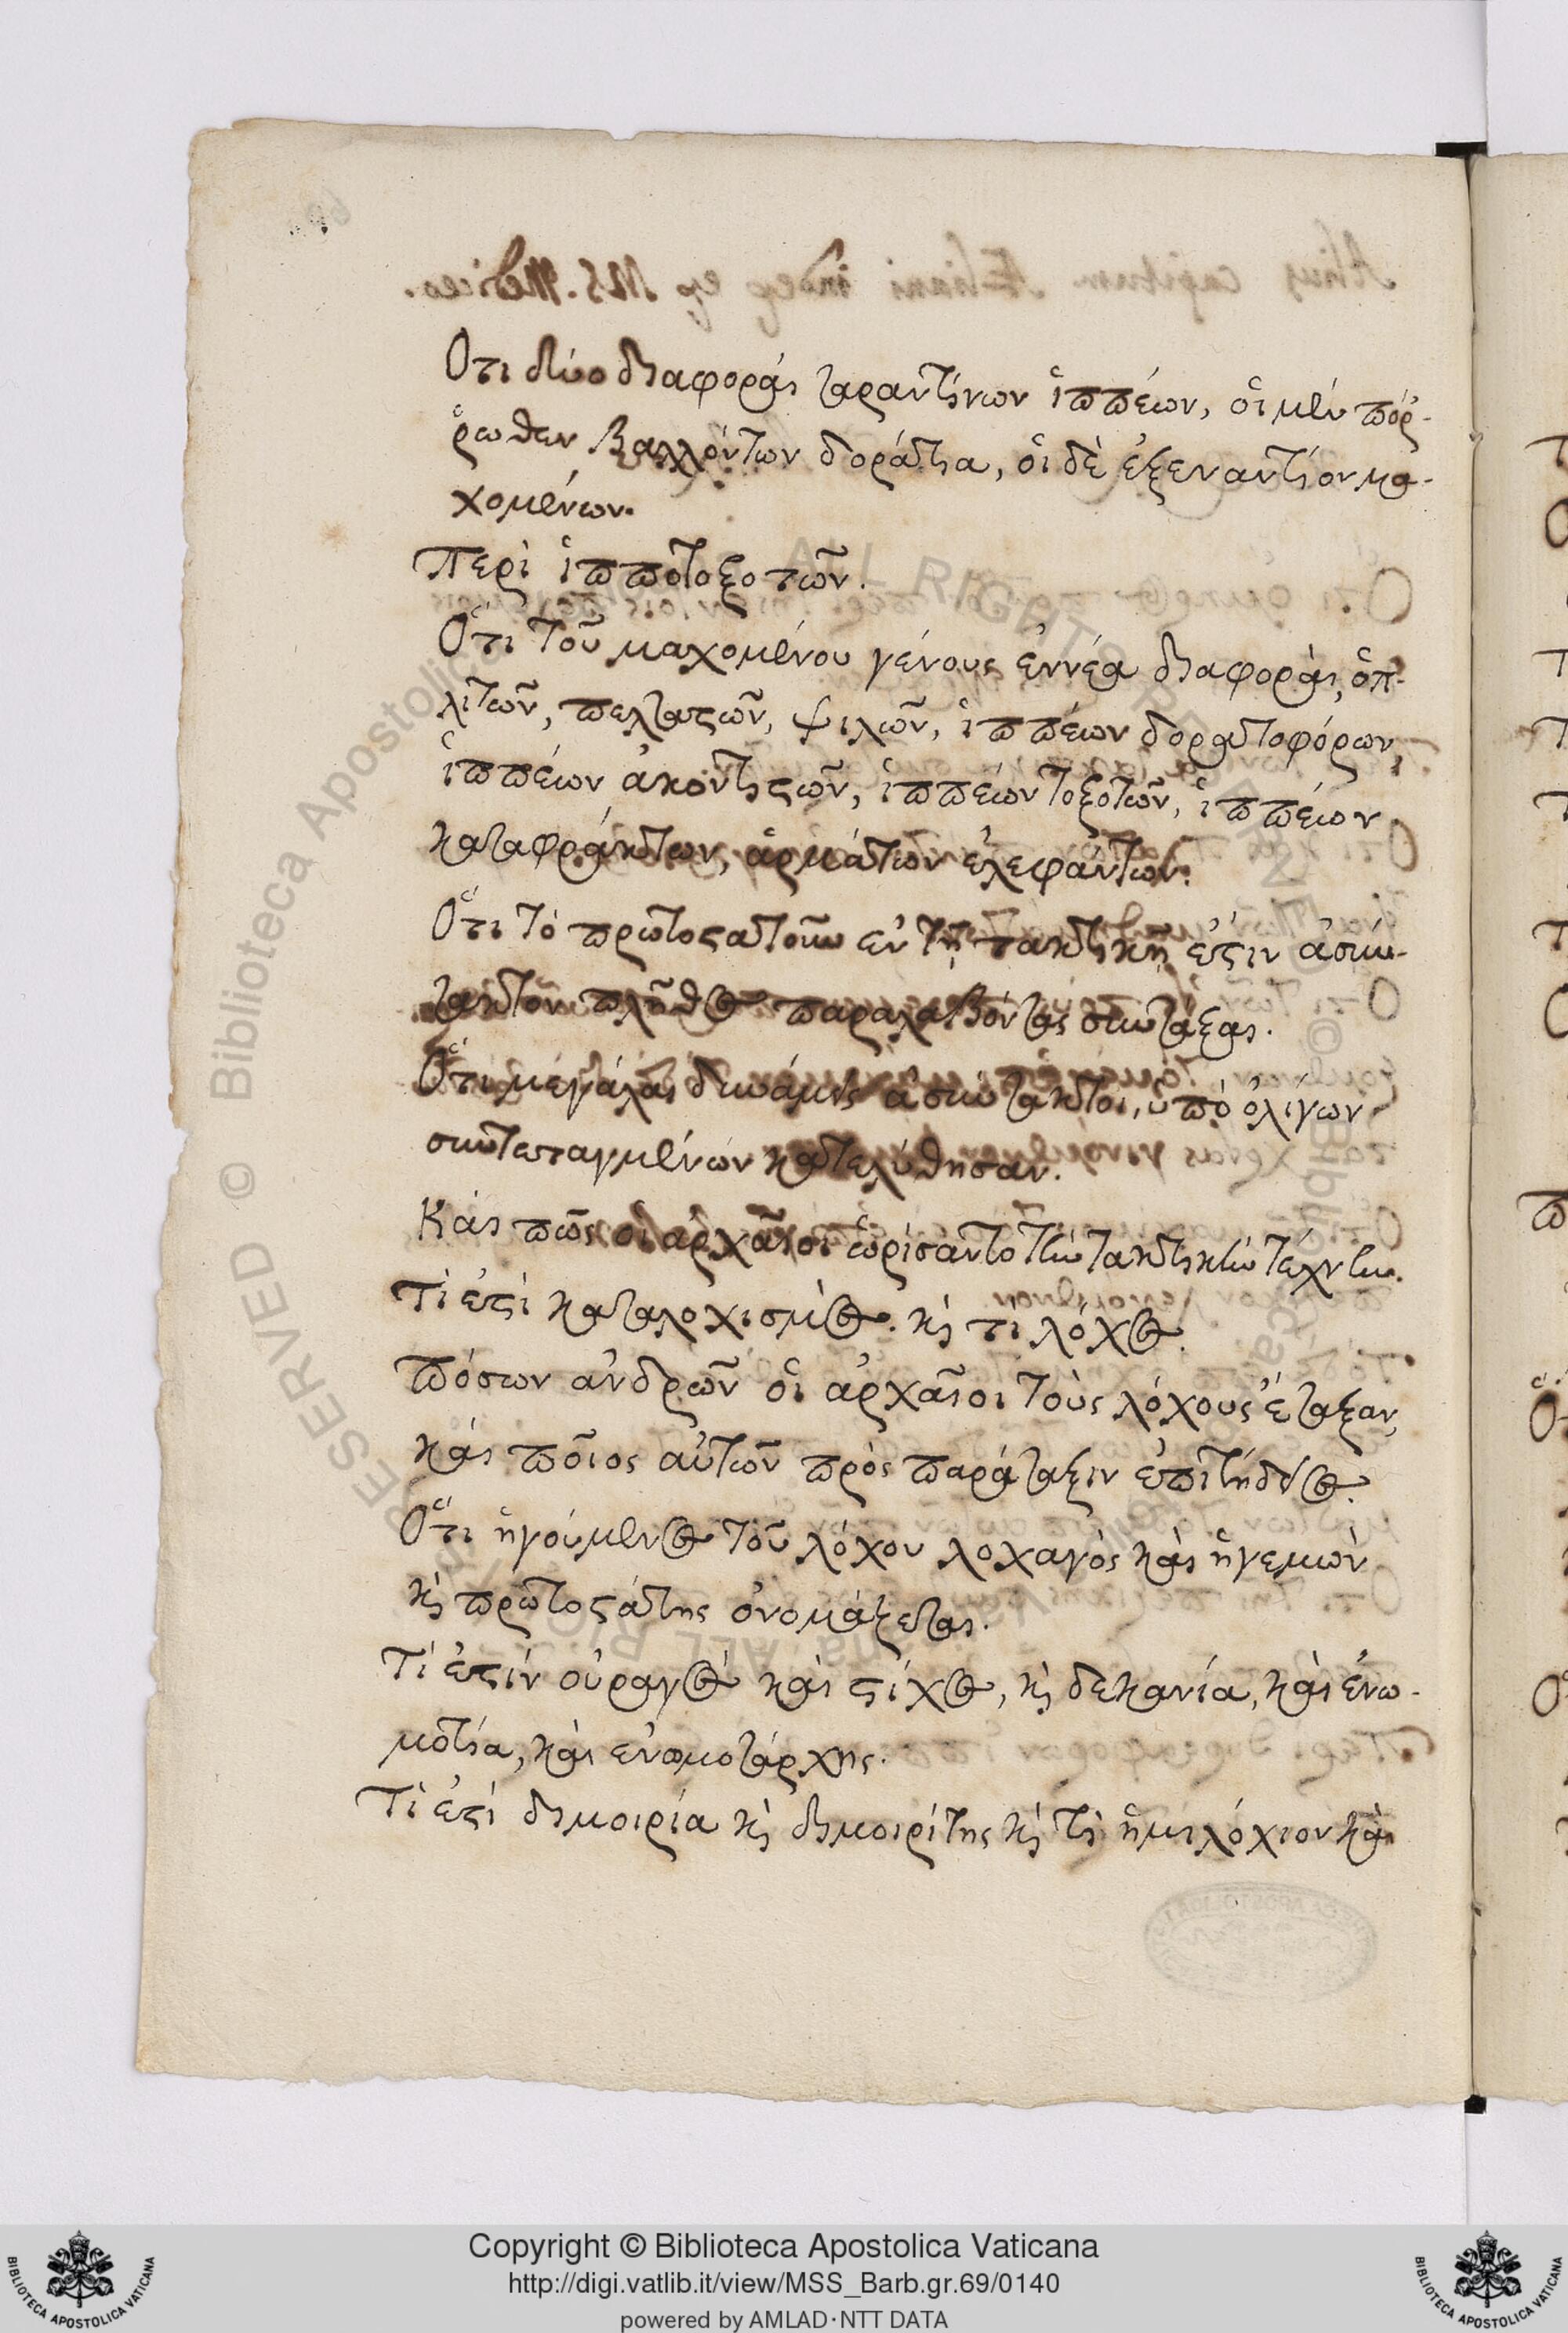 Ὅτι δύο διαφοραὶ ταραντίνων ἱππέων, οἱ μὲν πόρ-
ῥωθεν βαλλόντων δοράτια, οἱ δὲ ἐξεναντίον μα-
χομένων.
Περὶ ἱπποτοξοτῶν.
Ὅτι τοῦ μαχομένου γένους ἐννέα διαφοραὶ, ὁπ-
λιτῶν, πελταστῶν, ψιλῶν, ἱππέων δορατοφόρων,
ἱππέων ἀκοντιστῶν, ἱππέων τοξοτῶν, ἱππέων
καταφράκτων, ἁρμάτων ἐλεφάντων.
Ὅτι τὸ πρωτοστατοῦν ἐν τῇ τακτικῇ ἐστιν ἀσύν-
τακτον πλῆθος παραλαβόντας συντάξαι.
Ὅτι μεγάλαι δυνάμεις ἀσύντακτοι, ὑπὸ ὀλίγων
συντεταγμένων κατελύθησαν.
Καὶ πῶς οἱ ἀρχαῖοι ὡρίσαντο τὴν τακτικὴν τέχνην.
Τί ἐστι καταλοχισμὸς. καὶ τί λόχος.
Πόσων ἀνδρῶν οἱ ἀρχαῖοι τοὺς λόχους ἔταξαν,
καὶ ποῖος αὐτῶν πρὸς παράταξιν ἐπιτήδειος.
Ὅτι ἡγούμενος τοῦ λόχου λοχαγὸς καὶ ἡγεμὼν
καὶ πρωτοστάτης ὀνομάζεται.
Τί ἐστὶν οὐραγὸς καὶ στίχος, καὶ δεκανία, καὶ ἐνω-
μοτία, καὶ ἐνωμοτάρχης.
Τί ἐστὶ διμοιρία καὶ διμοιρίτης καὶ τί ἡμιλόχιον καὶ
Copyright © Biblioteca Apostolica Vaticana
http://digi.vatlib.it/view/MSS_Barb.gr.69/0140
powered by AMLAD·NTT DATA